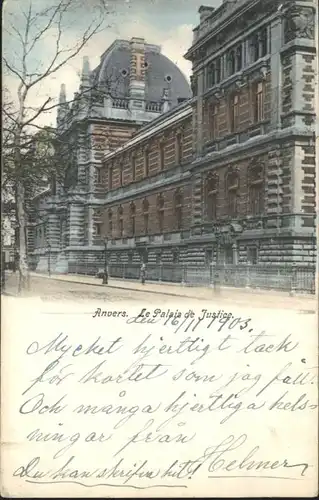 Anvers. Le Palais de Justice.
den 16/11 1903.
Mycket hjertligt tack
för kortet som jag fått.
Och många hjertliga hels-
ningar från
Du kan skrifva hit! Helmer